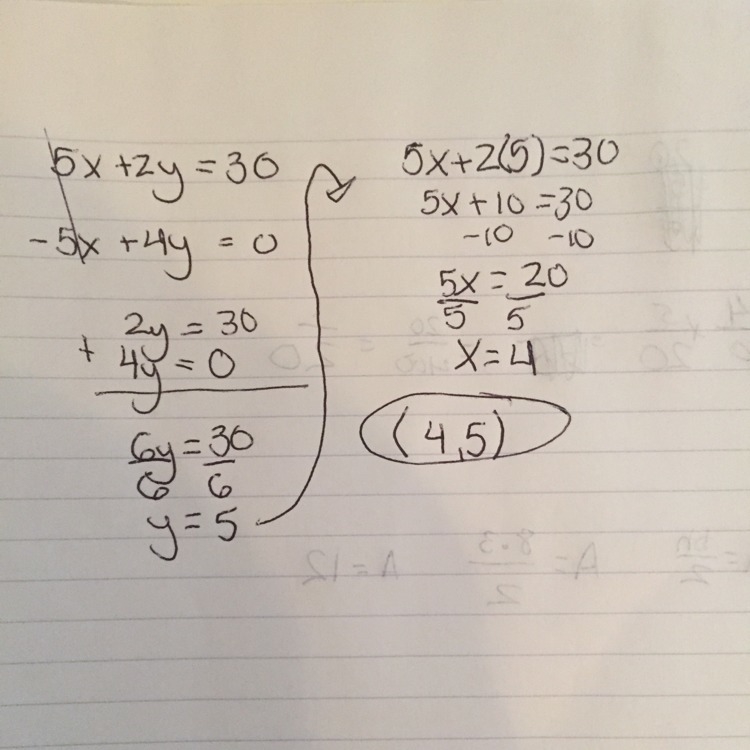 5x + 2y = 30
-5x + 4y = 0
2y = 30
+ 4y = 0
6y = 30
6 6
y = 5
5x + 2(5) = 30
5x + 10 = 30
-10 -10
5x = 20
5 5
x = 4
(4,5)
A = 8·3
2
A = 12